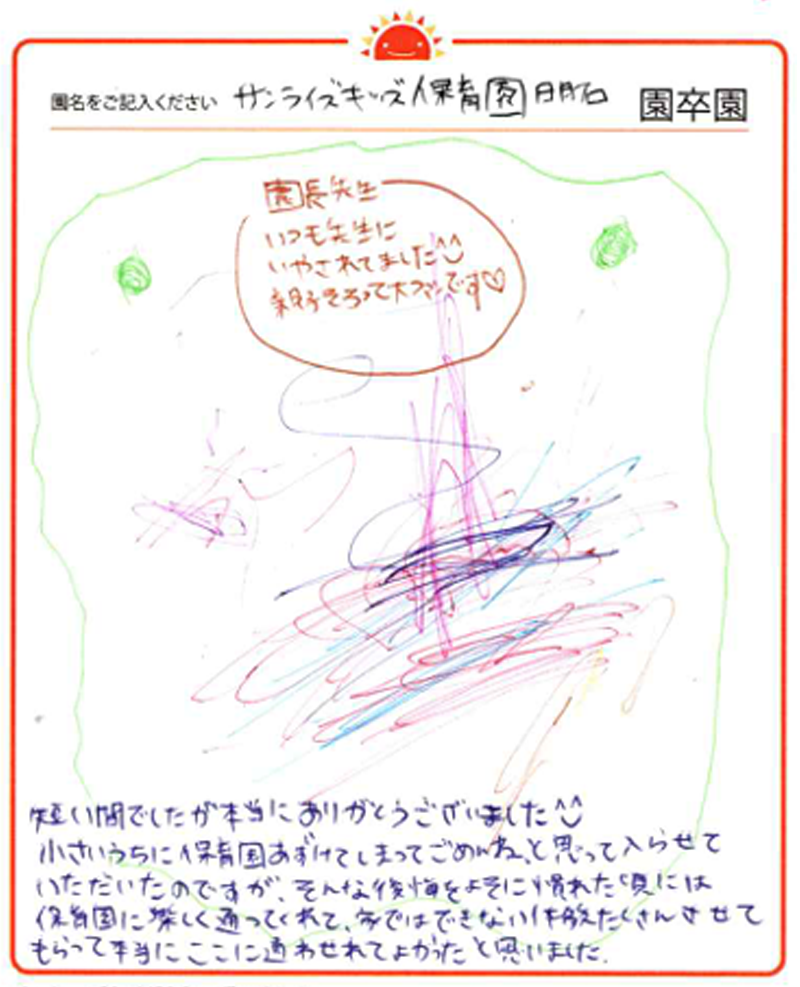 園名をご記入ください サンライズキッズ保育園明石 園卒園
園長先生
いつも先生に
いやされてました^^
親子そろって大ファンです♡
短い間でしたが本当にありがとうございました^^
小さいうちに保育園あずけてしまってごめんね、と思って入らせて
いただいたのですが、そんな後悔をよそに慣れた頃には
保育園に楽しく通ってくれて、家ではできない体験たくさんさせて
もらって本当にここに通わせれてよかったと思いました.